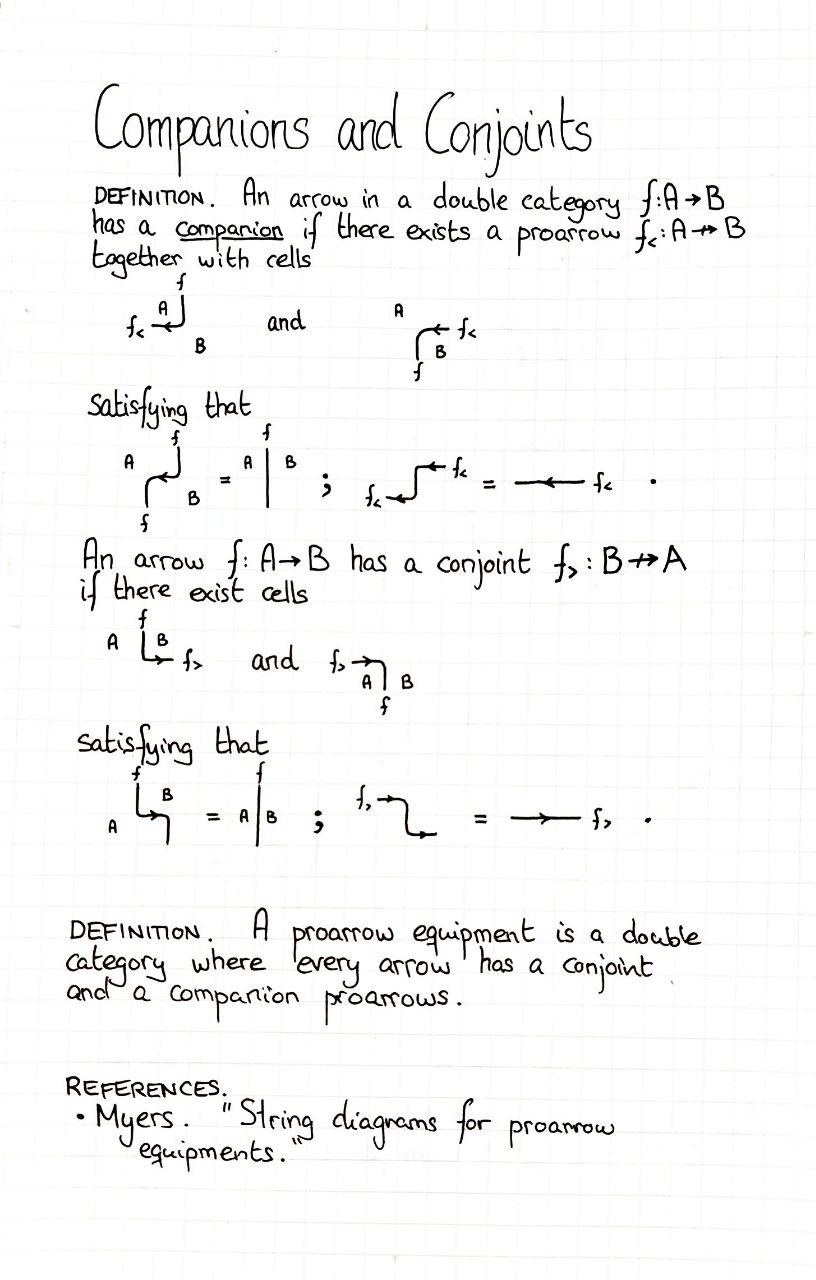 Companions and Conjoints
DEFINITION. An arrow in a double category f:A→B
has a companion if there exists a proarrow f<:A⇸B
together with cells
f
A
f< B
and
A
f<
B
f
satisfying that
f
A
B
f
=
f
A B
;
f< f< = f< .
An arrow f: A→B has a conjoint f>: B⇸A
if there exist cells
f
A B
f>
and
f>
A B
f
satisfying that
f
B
A
=
f
A B
;
f> = f> .
DEFINITION. A proarrow equipment is a double
category where every arrow has a conjoint
and a companion proarrows.
REFERENCES.
• Myers. "String diagrams for proarrow
equipments."